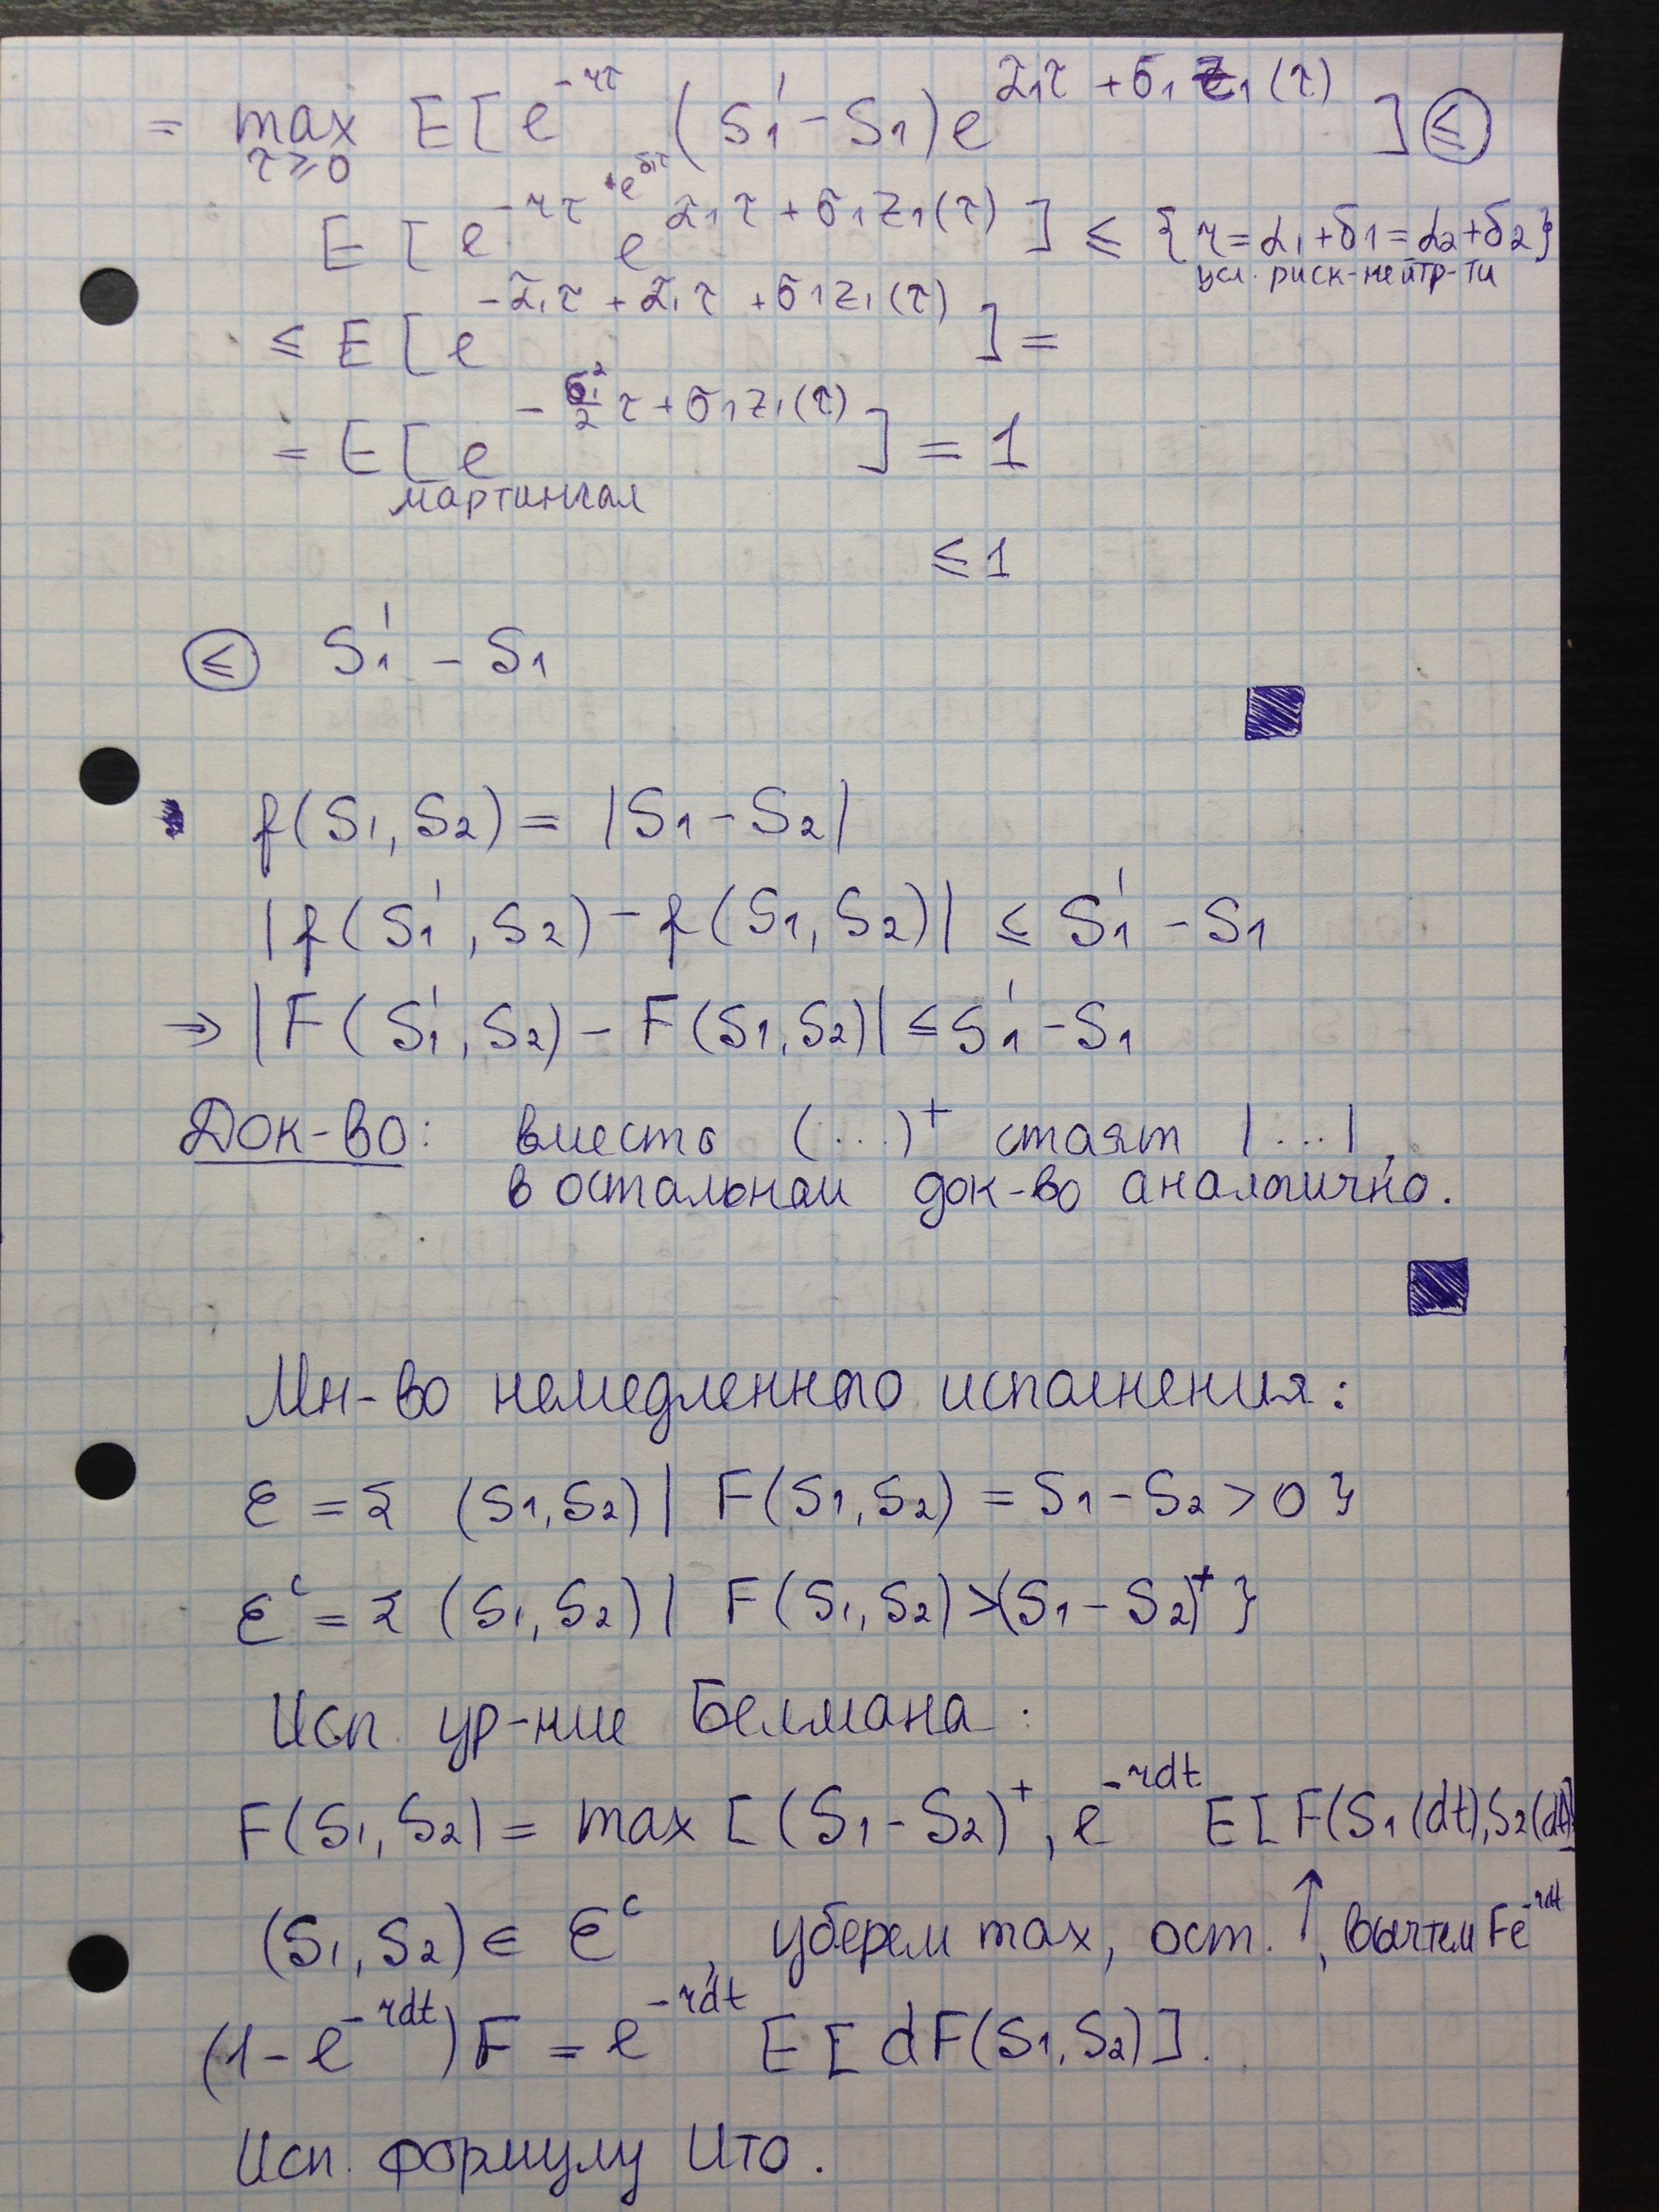 = max E[e^{-rτ} (S₁' - S₁)e^{α̃₁τ + σ₁z₁(τ)}] ≤
τ≥0
E[e^{-rτ}·e^{δ₁τ} e^{α̃₁τ + σ₁z₁(τ)}] ≤ {r = α₁+δ₁ = α₂+δ₂}
усл. риск-нейтр-ти
≤ E[e^{-α̃₁τ + α̃₁τ + σ₁z₁(τ)}] =
= E[e^{-σ₁²/2 τ + σ₁z₁(τ)}] = 1
мартингал
≤ 1
≤ S₁' - S₁
f(S₁, S₂) = |S₁ - S₂|
|f(S₁', S₂) - f(S₁, S₂)| ≤ S₁' - S₁
⇒ |F(S₁', S₂) - F(S₁, S₂)| ≤ S₁' - S₁
Док-во: вместо (...)⁺ стоят |...|,
в остальном док-во аналогично.
Мн-во немедленного исполнения:
ε = { (S₁, S₂) | F(S₁, S₂) = S₁ - S₂ > 0 }
ε^c = { (S₁, S₂) | F(S₁, S₂) > (S₁ - S₂)⁺ }
Исп. ур-ние Беллмана:
F(S₁, S₂) = max [(S₁ - S₂)⁺, e^{-rdt} E[F(S₁(dt), S₂(dt)]
(S₁, S₂) ∈ ε^c, уберем max, ост. ↑, вычтем Fe^{-rdt}
(1 - e^{-rdt})F = e^{-rdt} E[dF(S₁, S₂)].
Исп. формулу Ито.